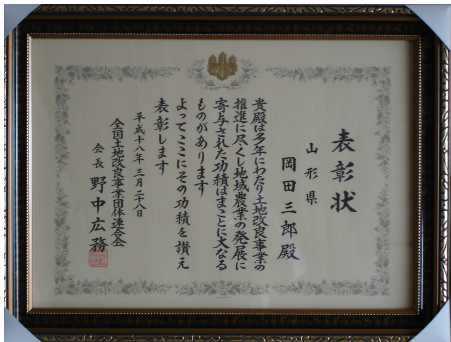 表彰状
山形県
岡田三郎殿
貴殿は多年にわたり土地改良事業の
推進に尽くし地域農業の発展に
寄与された功績はまことに大なる
ものがあります
よってここにその功績を讃え
表彰します
平成十八年三月二八日
全国土地改良事業団体連合会
会長 野中広務